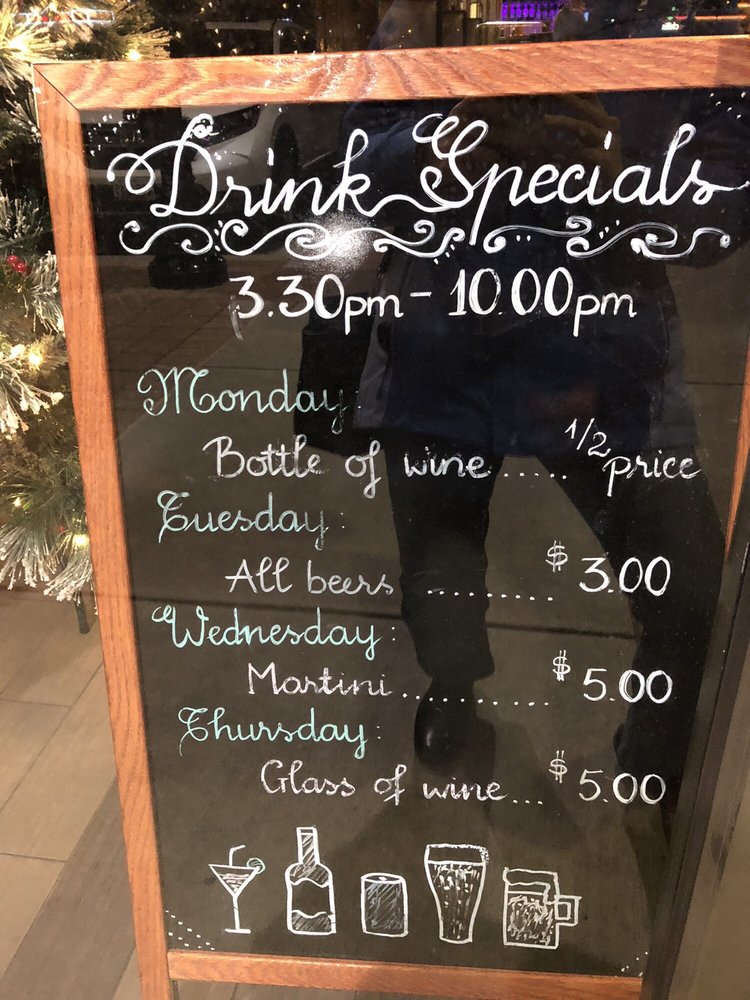 Drink Specials
3.30pm - 10.00pm
Monday
Bottle of wine ..... 1/2 price
Tuesday:
All beers .......... $ 3.00
Wednesday:
Martini ............ $ 5.00
Thursday:
Glass of wine ... $ 5.00